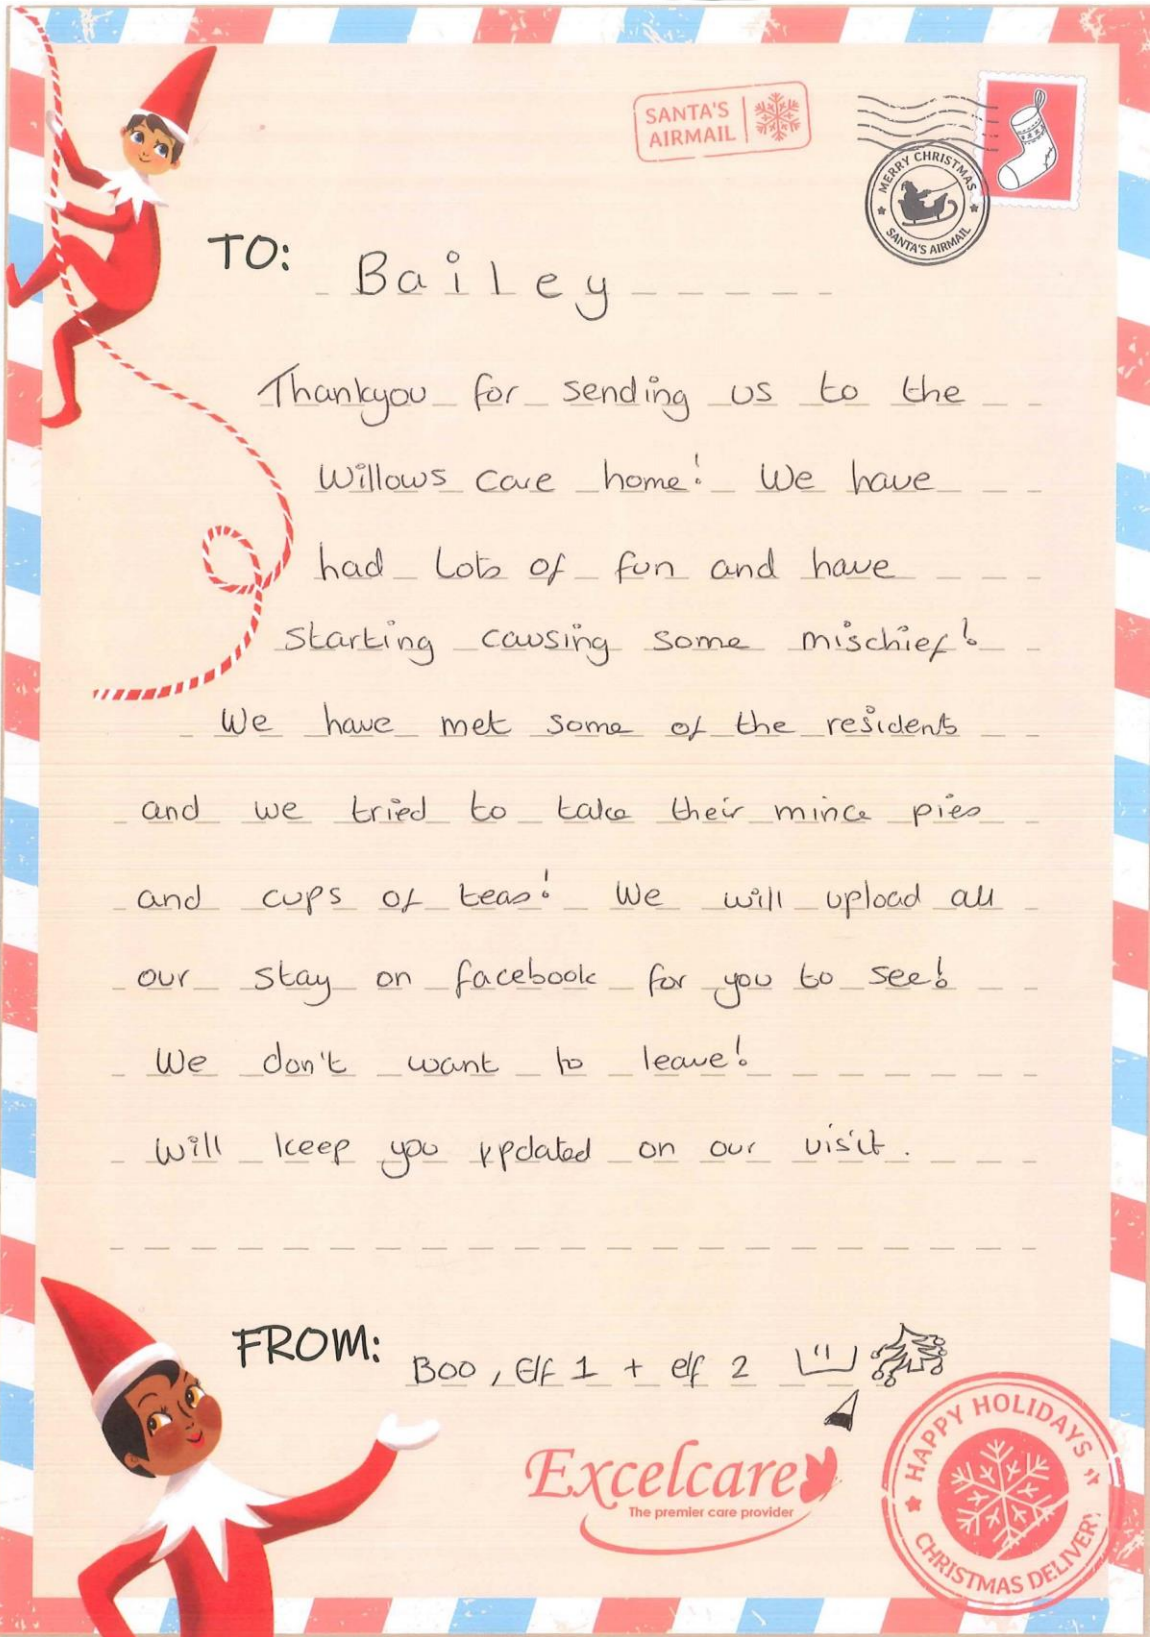 SANTA'S
AIRMAIL
MERRY CHRISTMAS
SANTA'S AIRMAIL
TO: Bailey
Thankyou for sending us to the
Willows care home! We have
had Lots of fun and have
starting causing some mischief!
We have met some of the residents
and we tried to take their mince pies
and cups of teas! We will upload all
our stay on facebook for you to see!
We don't want to leave!
Will keep you updated on our visit.
FROM: Boo, Elf 1 + elf 2
Excelcare
The premier care provider
HAPPY HOLIDAYS
CHRISTMAS DELIVERY